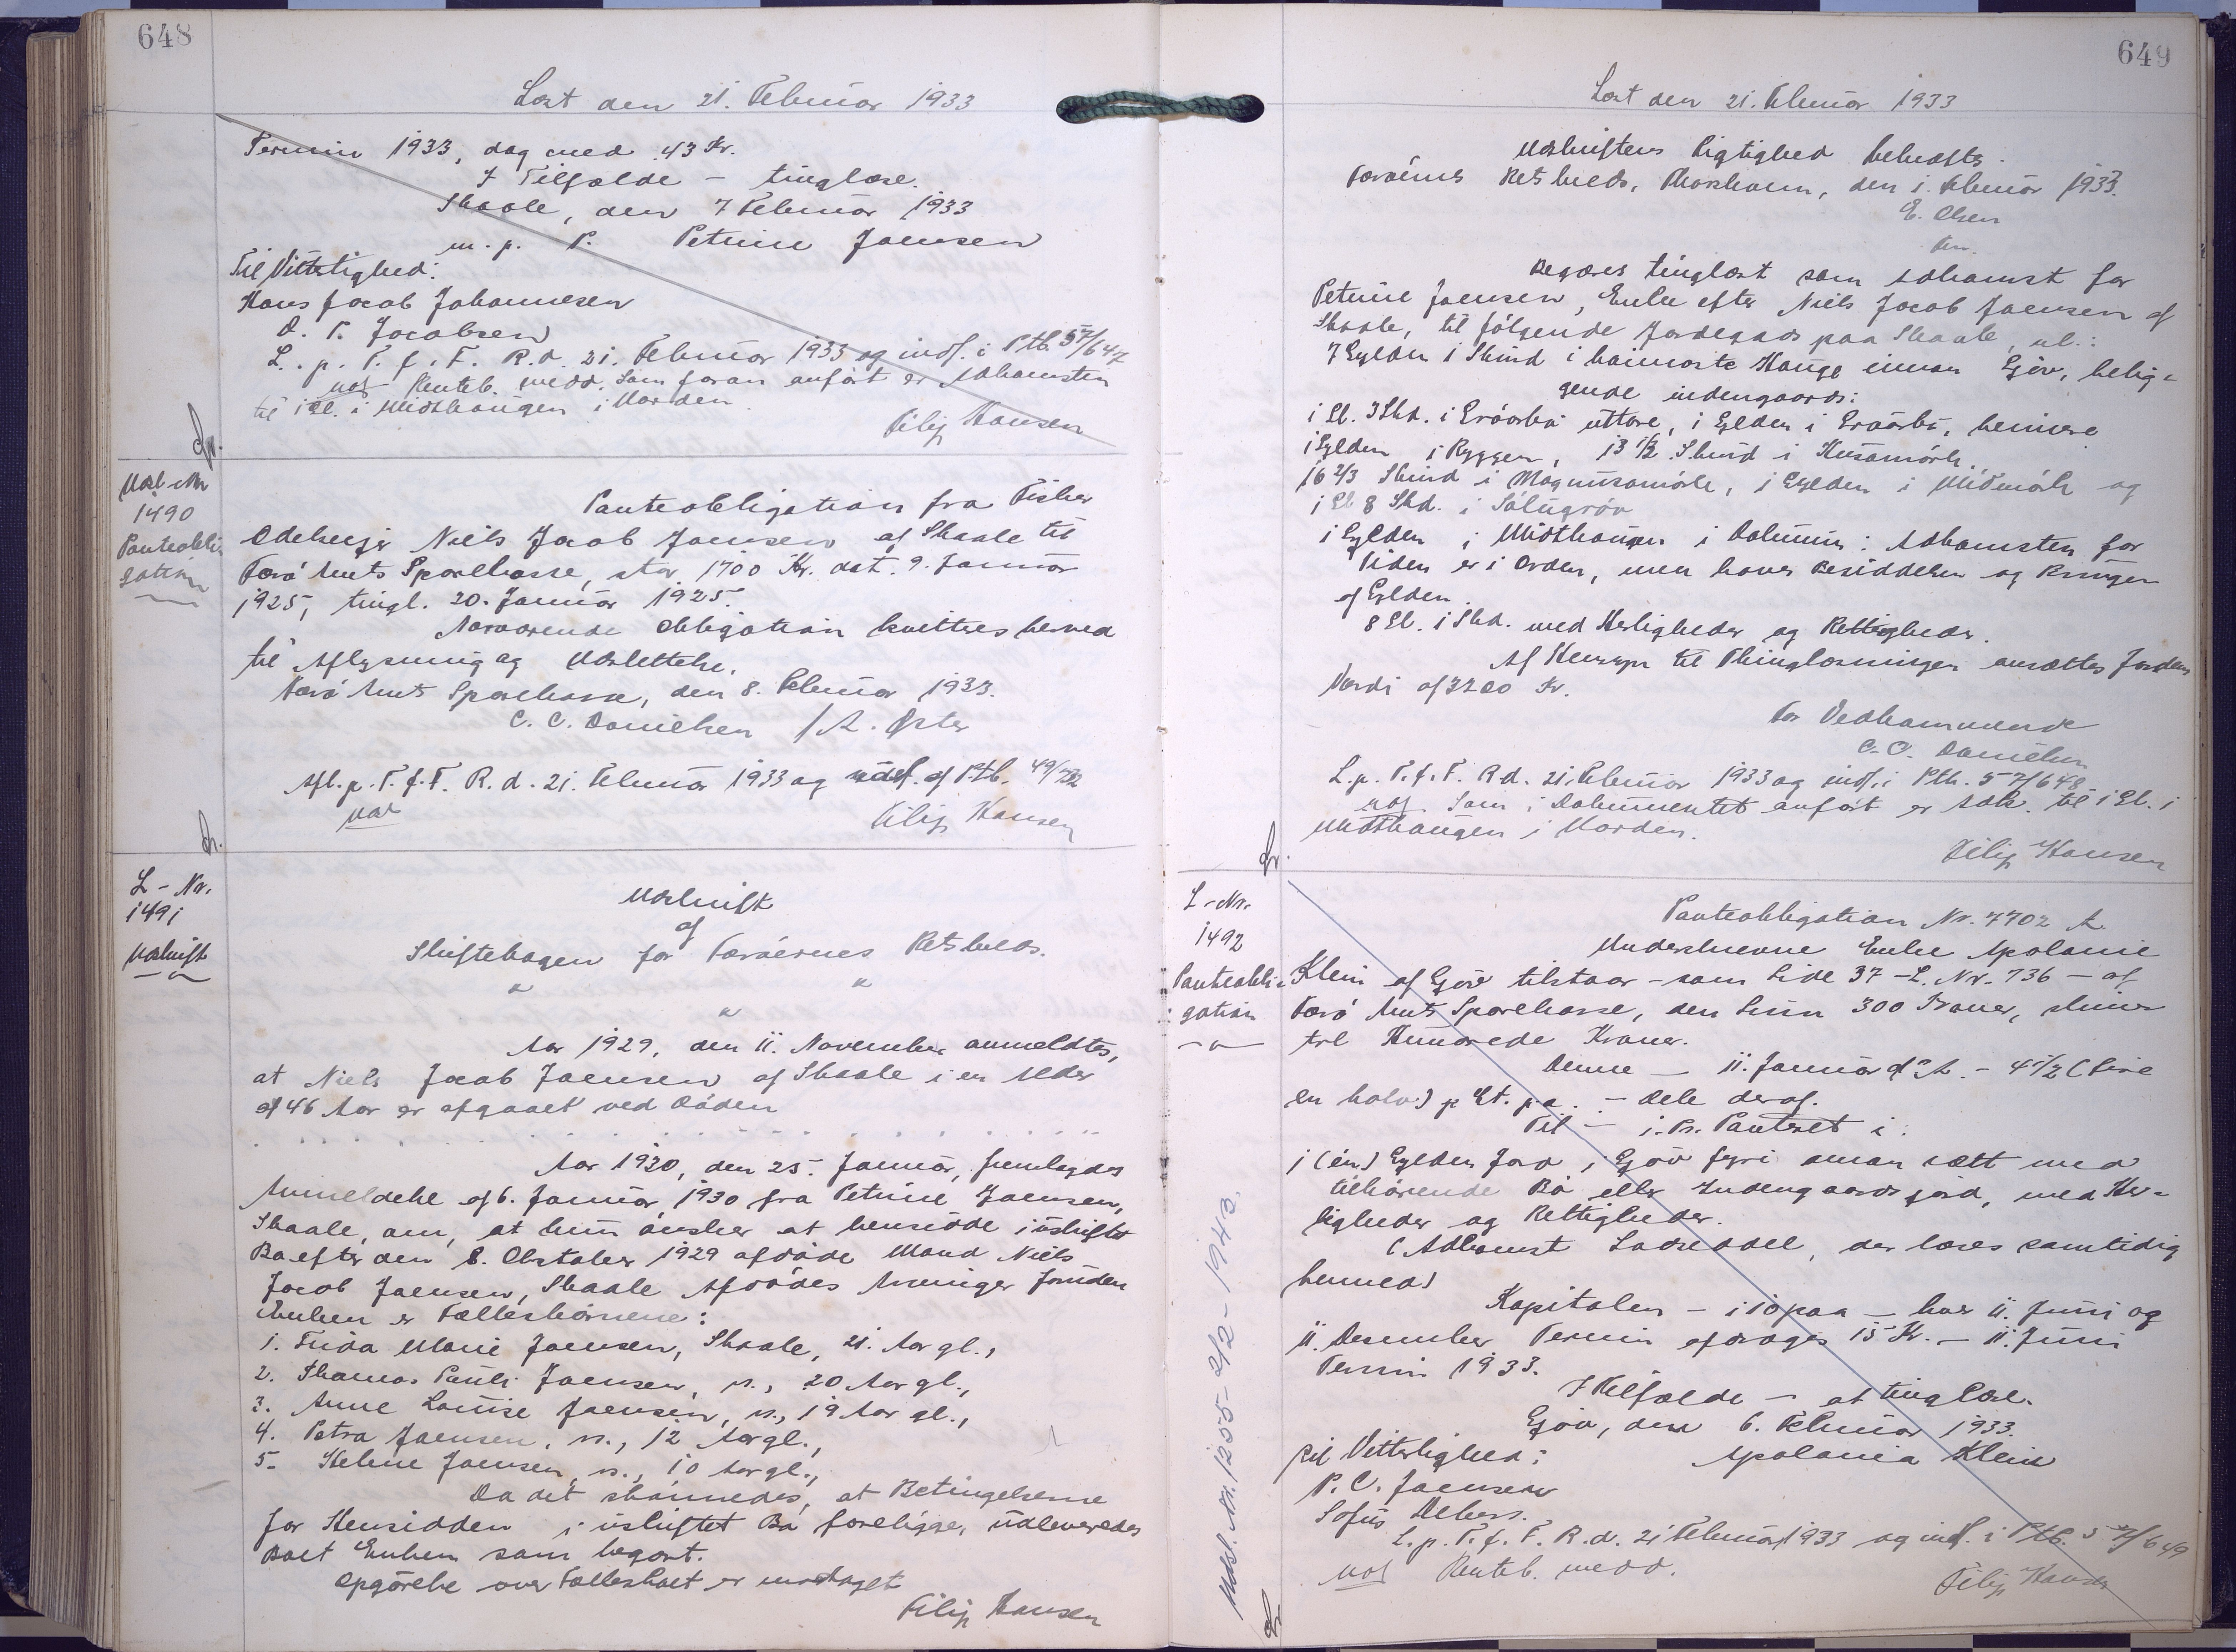 648
Læst den 21. Februar 1933
Termin 1933, dog med 43 Kr.
I Tilfælde - tinglæse.
Skaale, den 7 Februar 1933
m. p. P. Petrine Joensen
Til Vitterlighed:
Hans Jacob Johannesen
O. P. Jacobsen
L. p. T. f. F. R. d. 21. Februar 1933 og indf. i Ptb. 57/647
Renteb. medd. Som foran anført er Adkomsten
til 1 Gl. i Midthaugen i Orden
Filip Hansen
Udsl. Nr
1490
Panteobli-
gation
Panteobligation fra Fisker
Odelsejer Niels Jacob Joensen af Skaale til
Færø Amts Sparekasse, stor 1700 Kr. dat. 9. Januar
1925, tingl. 20. Januar 1925.
Nærværende Obligation kvitteres herved
til Aflysning og Udslettelse.
Færø Amts Sparekasse, den 8. Februar 1933.
C. C. Danielsen / A.
Afl. p. T. f. F. R. d. 21. Februar 1933 og udsl. af Ptb. 49/732
Filip Hansen
L - Nr.
1491
Udskrift
Udskrift
af
Skiftebogen for Færøernes Retskreds.
Aar 1929, den 11. November anmeldtes,
at Niels Jacob Joensen af Skaale i en Alder
af 46 Aar er afgaaet ved Døden
Aar 1930, den 25. Januar, fremlagdes
Anmeldelse af 6. Januar 1930 fra Petrine Joensen,
Skaale, om, at hun ønsker at hensidde i uskiftet
Bo efter den 8. Oktober 1929 afdøde Mand Niels
Jacob Joensen, Skaale Afdødes Arvinger foruden
Enken er Fællesbørnene:
1. Frida Marie Joensen, Skaale, 21. Aar gl.,
2. Thomas Pauli Joensen, s., 20 Aar gl.,
3. Anne Louise Joensen, s., 19 Aar gl.,
4. Petra Joensen, s., 12 Aar gl.,
5. Helene Joensen, s., 10 Aar gl.,
Da det skønnedes, at Betingelserne
for Hensidden i uskiftet Bo foreligger, udleveredes
Boet Enken som begært.
Opgørelse over Fællesboet er modtaget
Filip Hansen
649
Læst den 21. Februar 1933
Udskriftens Rigtighed bekræftes.
Færøernes Retskreds, Thorshavn, den 1. Februar 1933.
E. Olsen
Begæres tinglæst som Adkomst for
Petrine Joensen, Enke efter Niels Jacob Joensen af
Skaale, til følgende Jordegods paa Skaale, nl.:
7 Gylden i Skind i heimaste Hauge innan Gjov, belig-
gende indengaards:
1 Gl. 3 Skd. i uttare, 1 Gylden i heimare
1 Gylden i Ryggen, 13 1/2 Skind i Husamörk
16 2/3 Skind i Magnusamörk, 1 Gylden i Midmörk og
1 Gl 8 Skd. i
1 Gylden i Midthaugen i Adkomsten for
Tiden er i Orden, men haves Besiddelsen og Brugen
af Gylden.
8 Gl. 1 Skd. med Herligheder og Rettigheder.
Af Hensyn til Thinglæsningen ansættes Jordens
Værdi af 3200 Kr.
For Vedkommende
C. C. Danielsen
L. p. T. f. F. R. d. 21. Februar 1933 og indf. i Ptb. 57/648
Som i Dokumentet anført er Adk. til 1 Gl. i
Midthaugen i Orden.
Filip Hansen
L. - Nr.
1492
Panteobli-
gation
Panteobligation Nr. 7702 A.
Underskrevne Enke Apolonie
Klein af Gjov tilstaar - som Side 37 - L. Nr. 736 - af
Færø Amts Sparekasse, den Sum 300 Kroner, skriver
tre Hundrede Kroner.
Denne - 11. Januar d. A. - 4 1/2 (fire
en halv) p Ct. p. a. - Dele deraf.
Til - 1. Pr. Panteret i:
1 (en) Gylden Jord i Gjov fyri annan sætt med
tilhørende Bø eller Indengaardsjord, med Her-
ligheder og Rettigheder.
(Adkomst der læses samtidig
hermed)
Kapitalen - i 10 paa - hver 11. Juni og
11. Desember Termin afdrages 15 Kr. - 11. Juni
Termin 1933.
I Tilfælde - at tinglæse.
Gjov, den 6. Februar 1933.
Til Vitterlighed: Apolonia Klein
P. C. Joensen
Sofus Debess.
L. p. T. f. F. R. d. 21 Februar 1933 og indf. i Ptb. 57/649
Renteb. medd.
Filip Hansen
Udsl. Nr. 1255 - 2/2 - 1943.